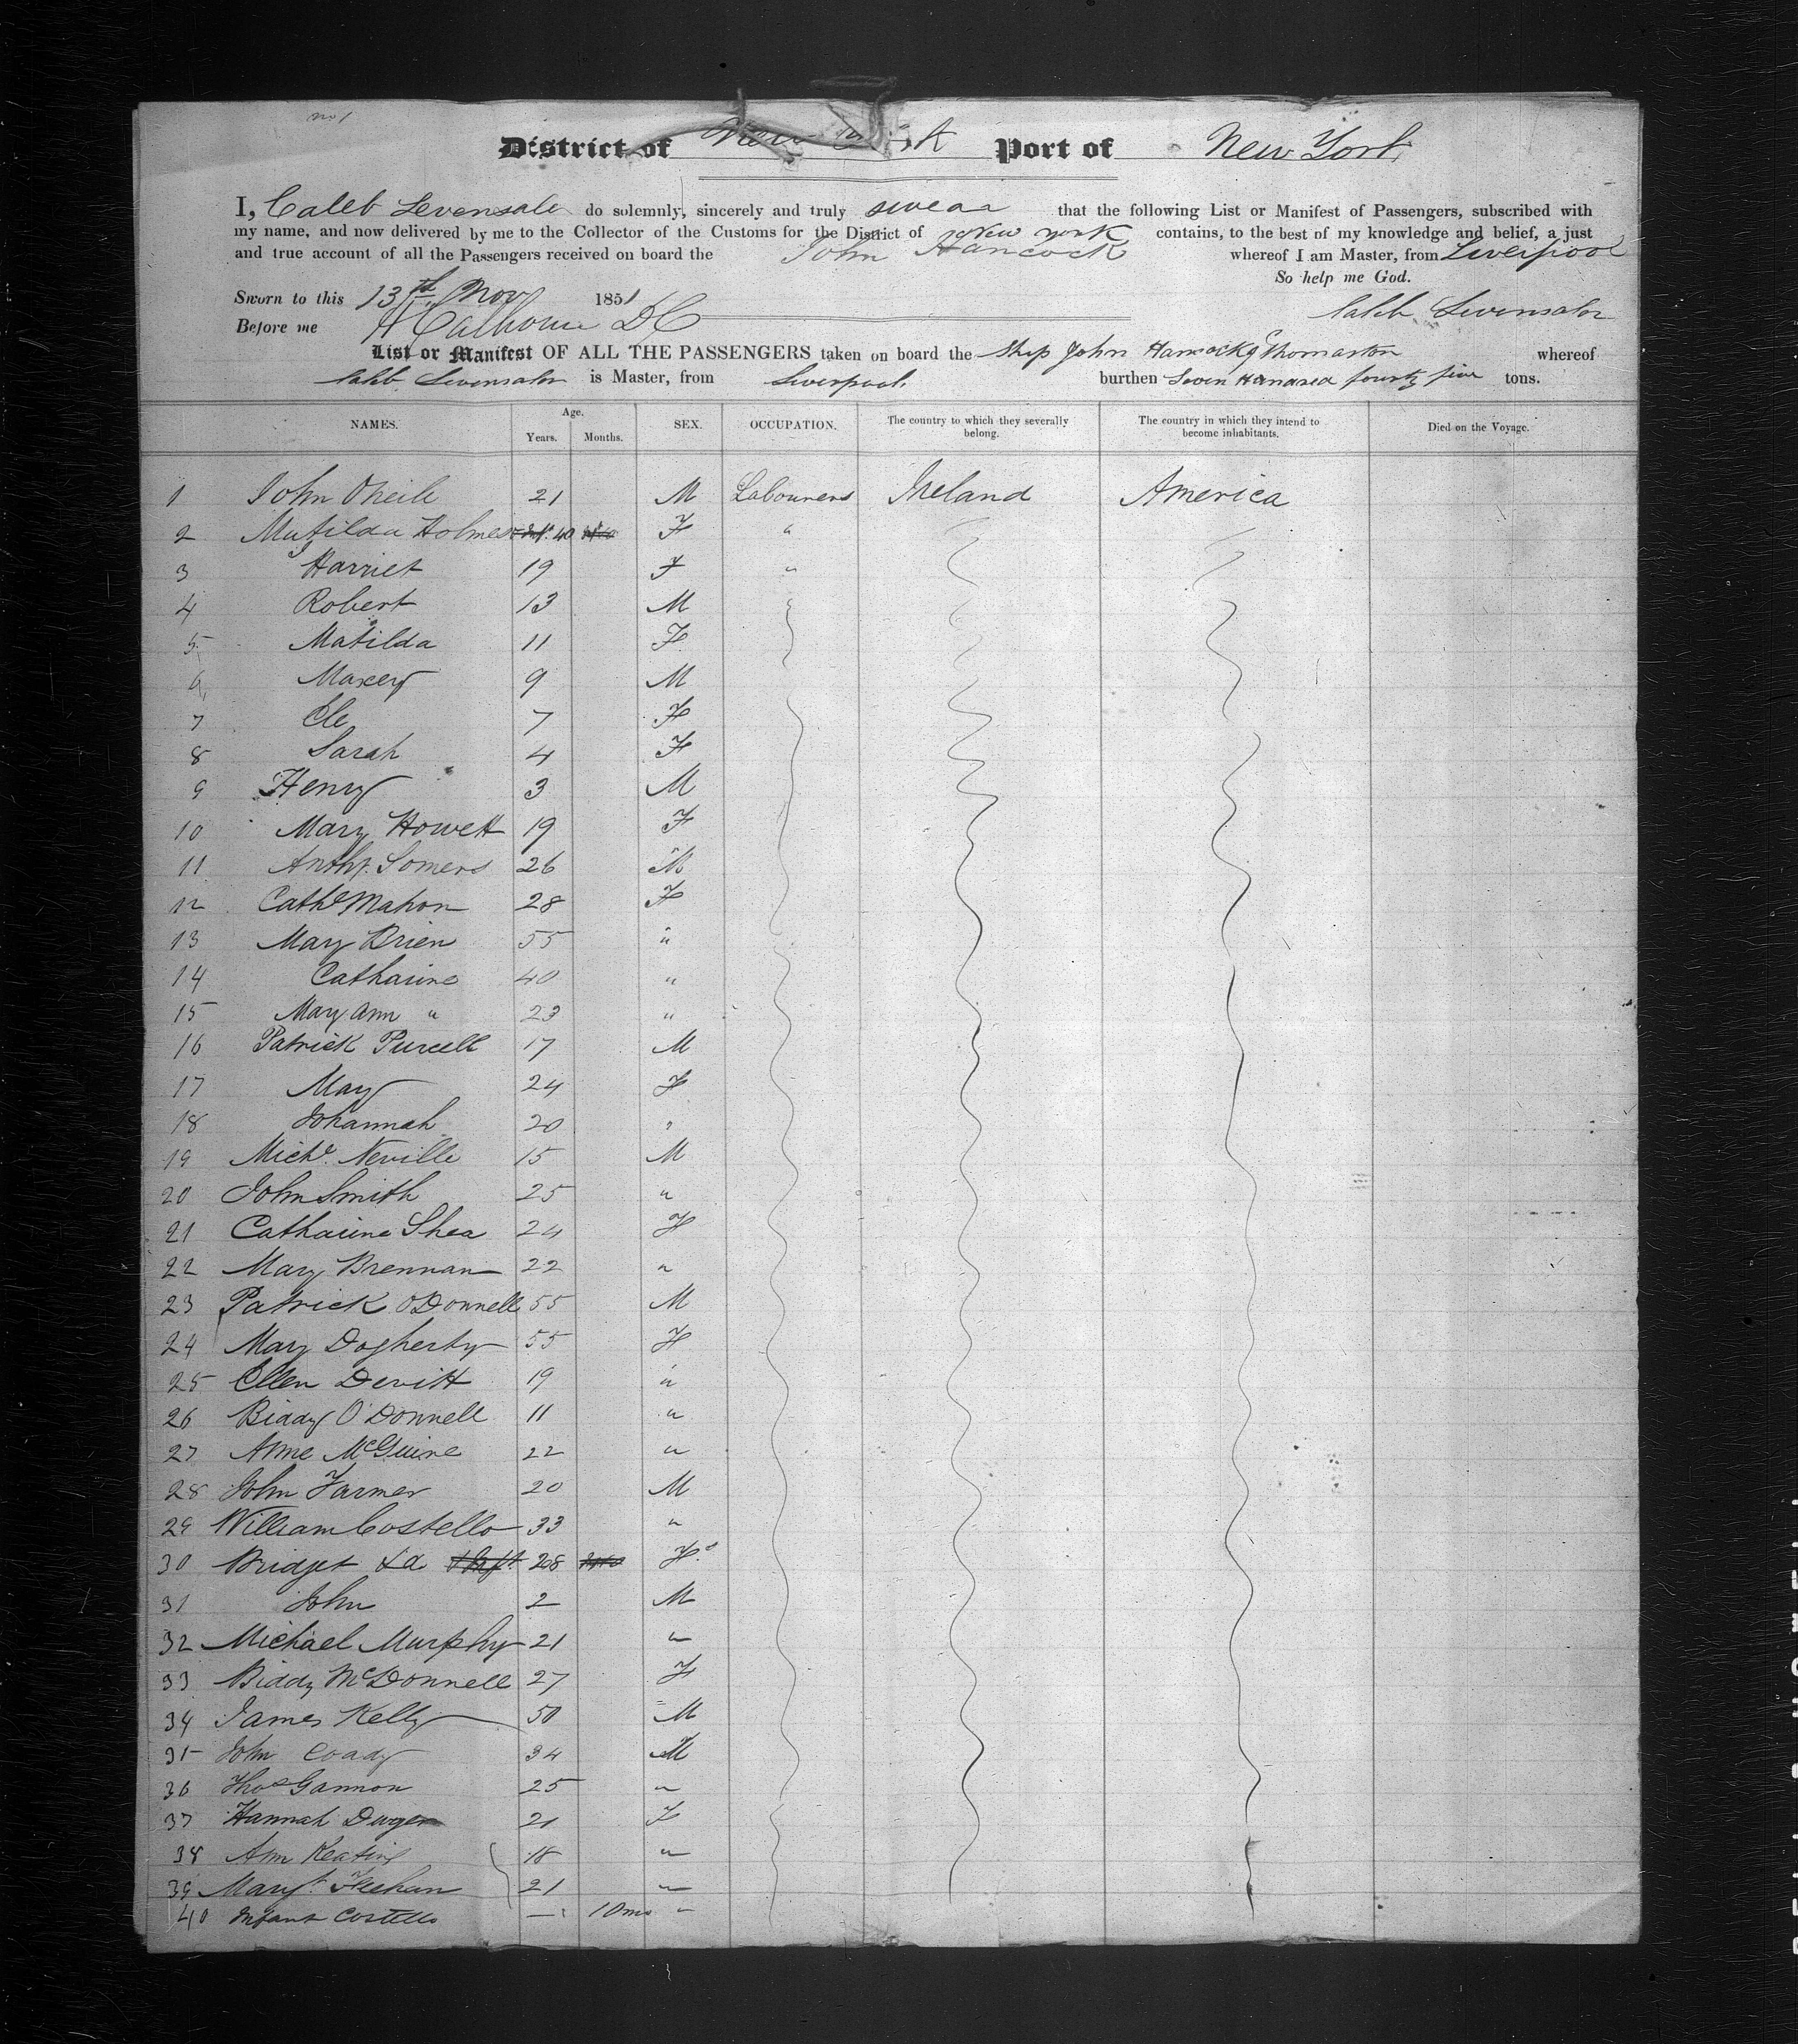 No 1
District of New York Port of New York
I, Caleb Levensaler do solemnly, sincerely and truly swear that the following List or Manifest of Passengers, subscribed with
my name, and now delivered by me to the Collector of the Customs for the District of New York contains, to the best of my knowledge and belief, a just
and true account of all the Passengers received on board the John Hancock whereof I am Master, from Liverpool
So help me God.
Sworn to this 13th Nov 1851
Caleb Levensaler
Before me A Calhoun DC
List or Manifest OF ALL THE PASSENGERS taken on board the Ship John Hancock of Thomaston whereof
Caleb Levensaler is Master, from Liverpool burthen Seven Hundred fourty five tons.
NAMES. Age. Years. Months. SEX. OCCUPATION. The country to which they severally belong. The country in which they intend to become inhabitants. Died on the Voyage.
1 John Oneile 21 M Labourers Ireland America
2 Matilda Holmes 40 F "
3 Harriet 19 F "
4 Robert 13 M
5 Matilda 11 F
6 Maxey 9 M
7 Ele 7 F
8 Sarah 4 F
9 Henry 3 M
10 Mary Howett 19 F
11 Anthy. Somers 26 M
12 Cathe Mahon 28 F
13 Mary Brien 55 "
14 Catharine 40 "
15 Mary Ann " 23 "
16 Patrick Purcell 17 M
17 Mary 24 F
18 Johannah 20 "
19 Michl. Neville 15 M
20 John Smith 25 "
21 Catharine Shea 24 F
22 Mary Brennan 22 "
23 Patrick ODonnell 55 M
24 Mary Dogherty 55 F
25 Ellen Devitt 19 "
26 Biddy O'Donnell 11 "
27 Anne McGuire 22 "
28 John Farmer 20 M
29 William Costello 33 "
30 Bridget 28 F
31 John 2 M
32 Michael Murphy 21 "
33 Biddy McDonnell 27 F
34 James Kelly 50 M
35 John Coady 34 M
36 Thos Gannon 25 "
37 Hannah Dwyer 21 F
38 Ann Keating 18 "
39 Maryt. Feehan 21 "
40 Infant Costello — 10 mo "